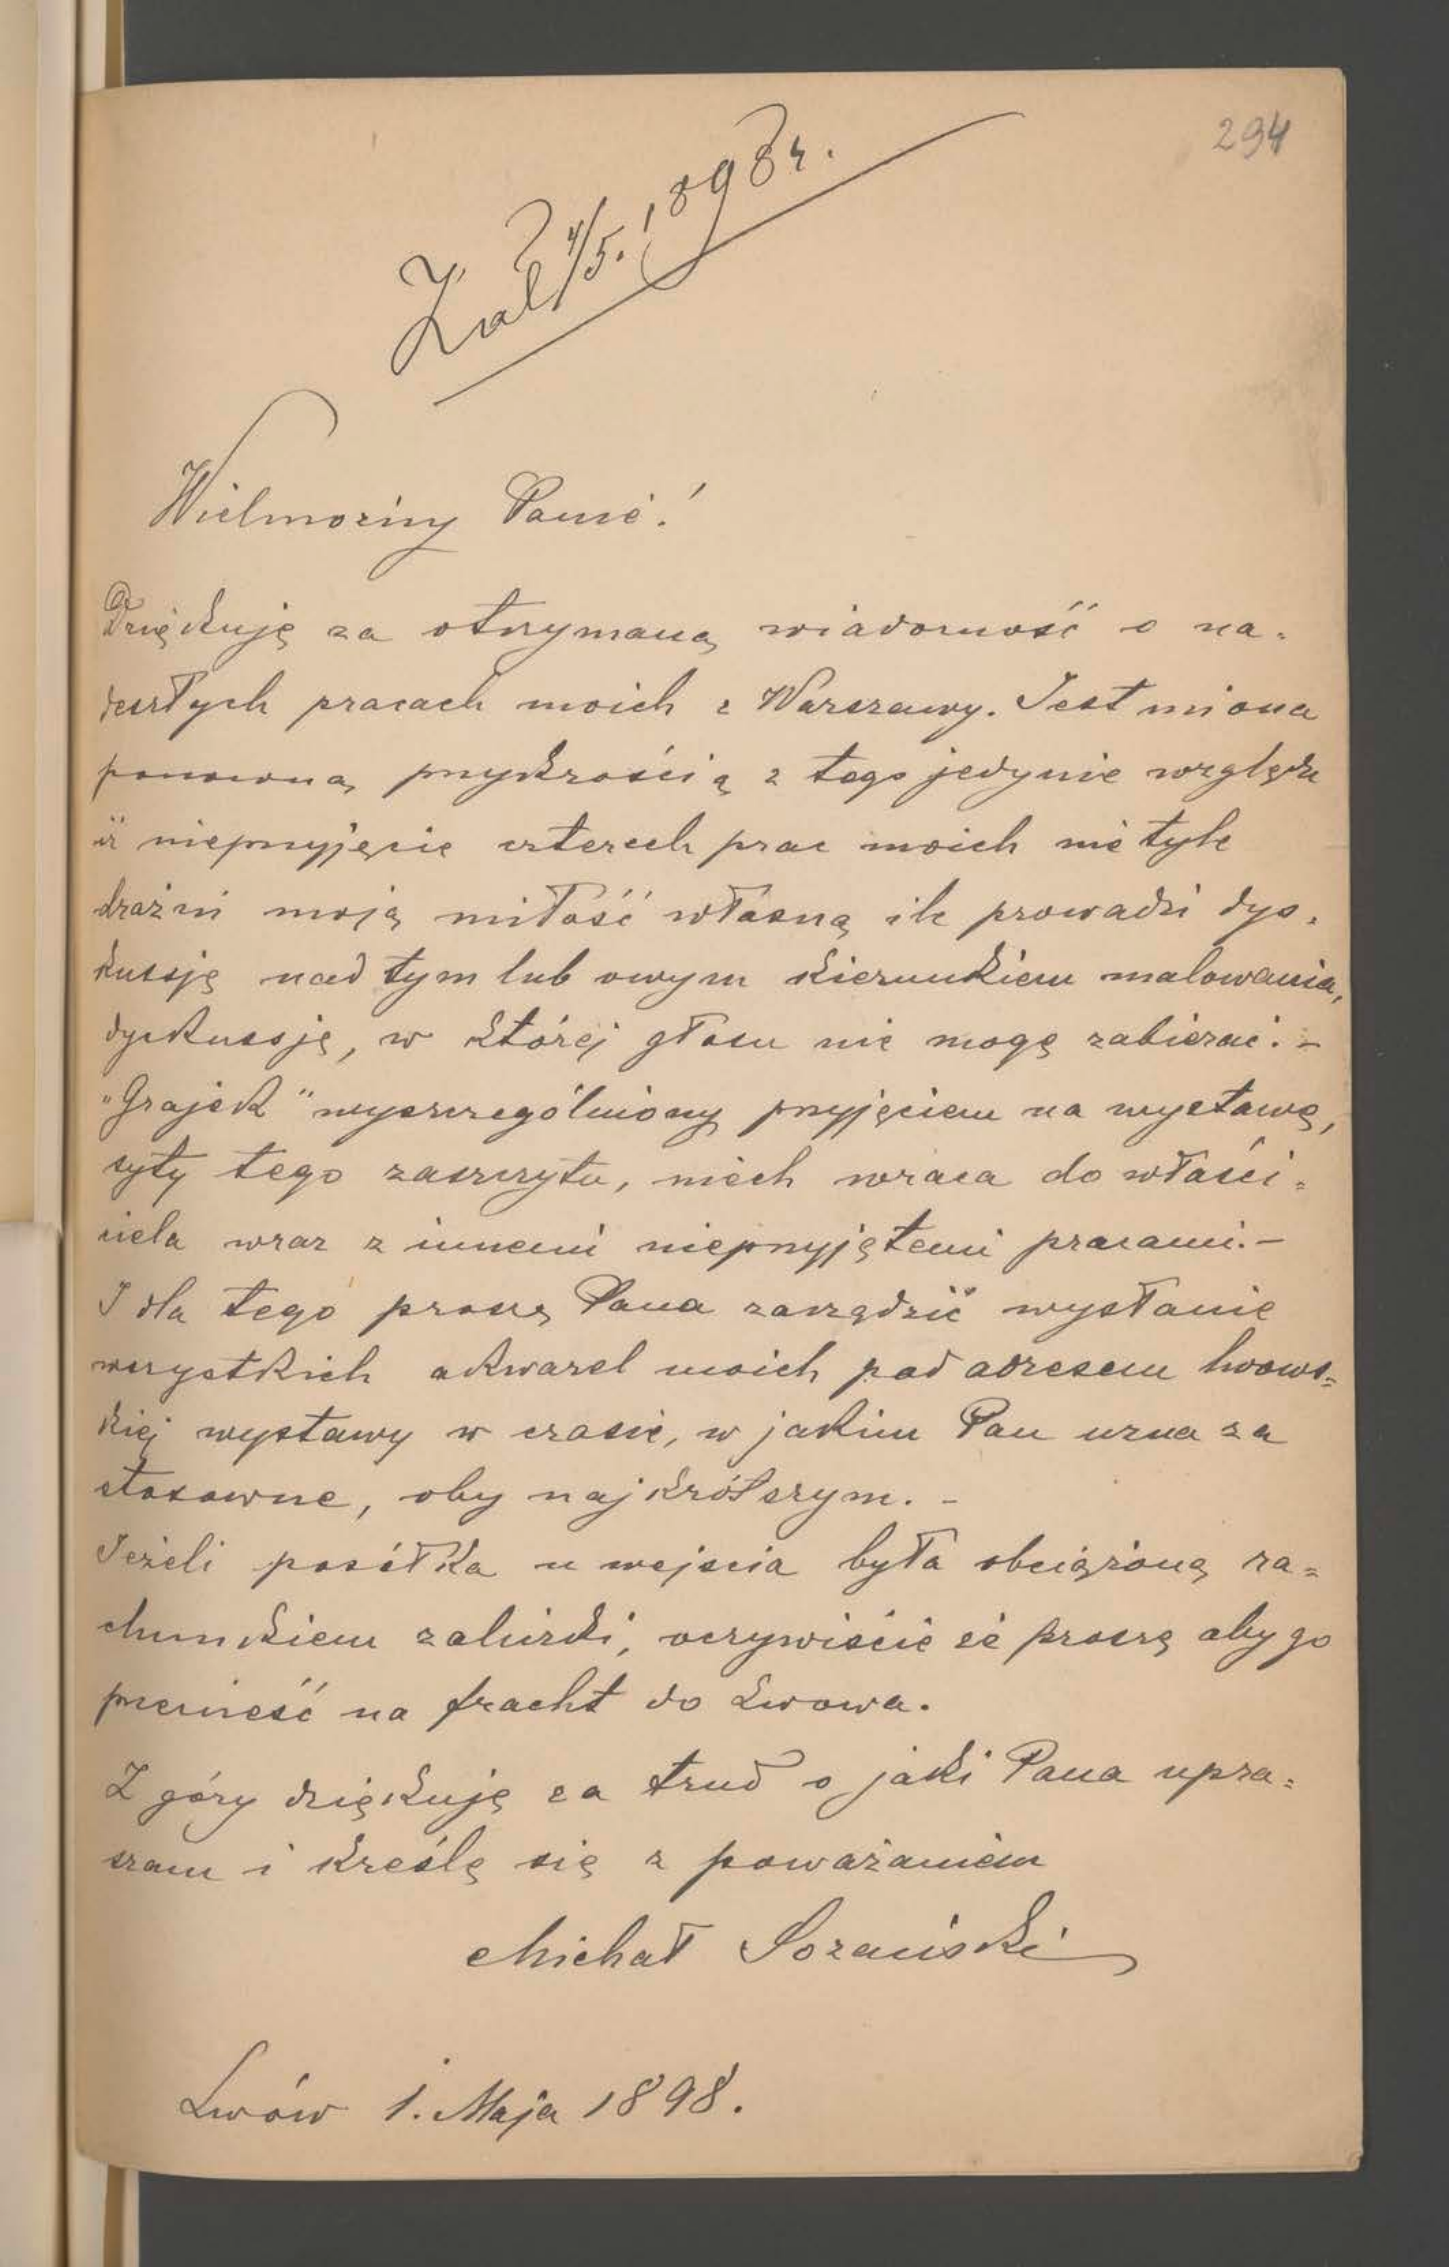 294
Zał 4/5. 1898 r.
Wielmożny Panie!
Dziękuję za otrzymaną wiadomość o na=
deszłych pracach moich z Warszawy. Jest mi ona
ponowną przykrością z tego jedynie względu
iż nieprzyjęcie czterech prac moich nie tyle
drażni moją miłość własną ile prowadzi dys=
kussję nad tym lub owym kierunkiem malowania,
dyskussję, w której głosu nie mogę zabierać. -
"Grajek" wyszczególniony przyjęciem na wystawę,
syty tego zaszczytu, niech wraca do właści=
ciela wraz z innemi nieprzyjętemi pracami. -
I dla tego proszę Pana zarządzić wysłanie
wszystkich akwarel moich pod adresem lwows=
kiej wystawy w czasie, w jakim Pan uzna za
stosowne, oby najkrótszym. -
Jeżeli posełka u wejscia była obciążoną ra=
chunkiem zaliczki, oczywiście że proszę aby go
przenieść na fracht do Lwowa.
Z góry dziękuję za trud o jaki Pana upra=
szam i kreślę się z poważaniem
Michał Sozański
Lwów 1. Maja 1898.